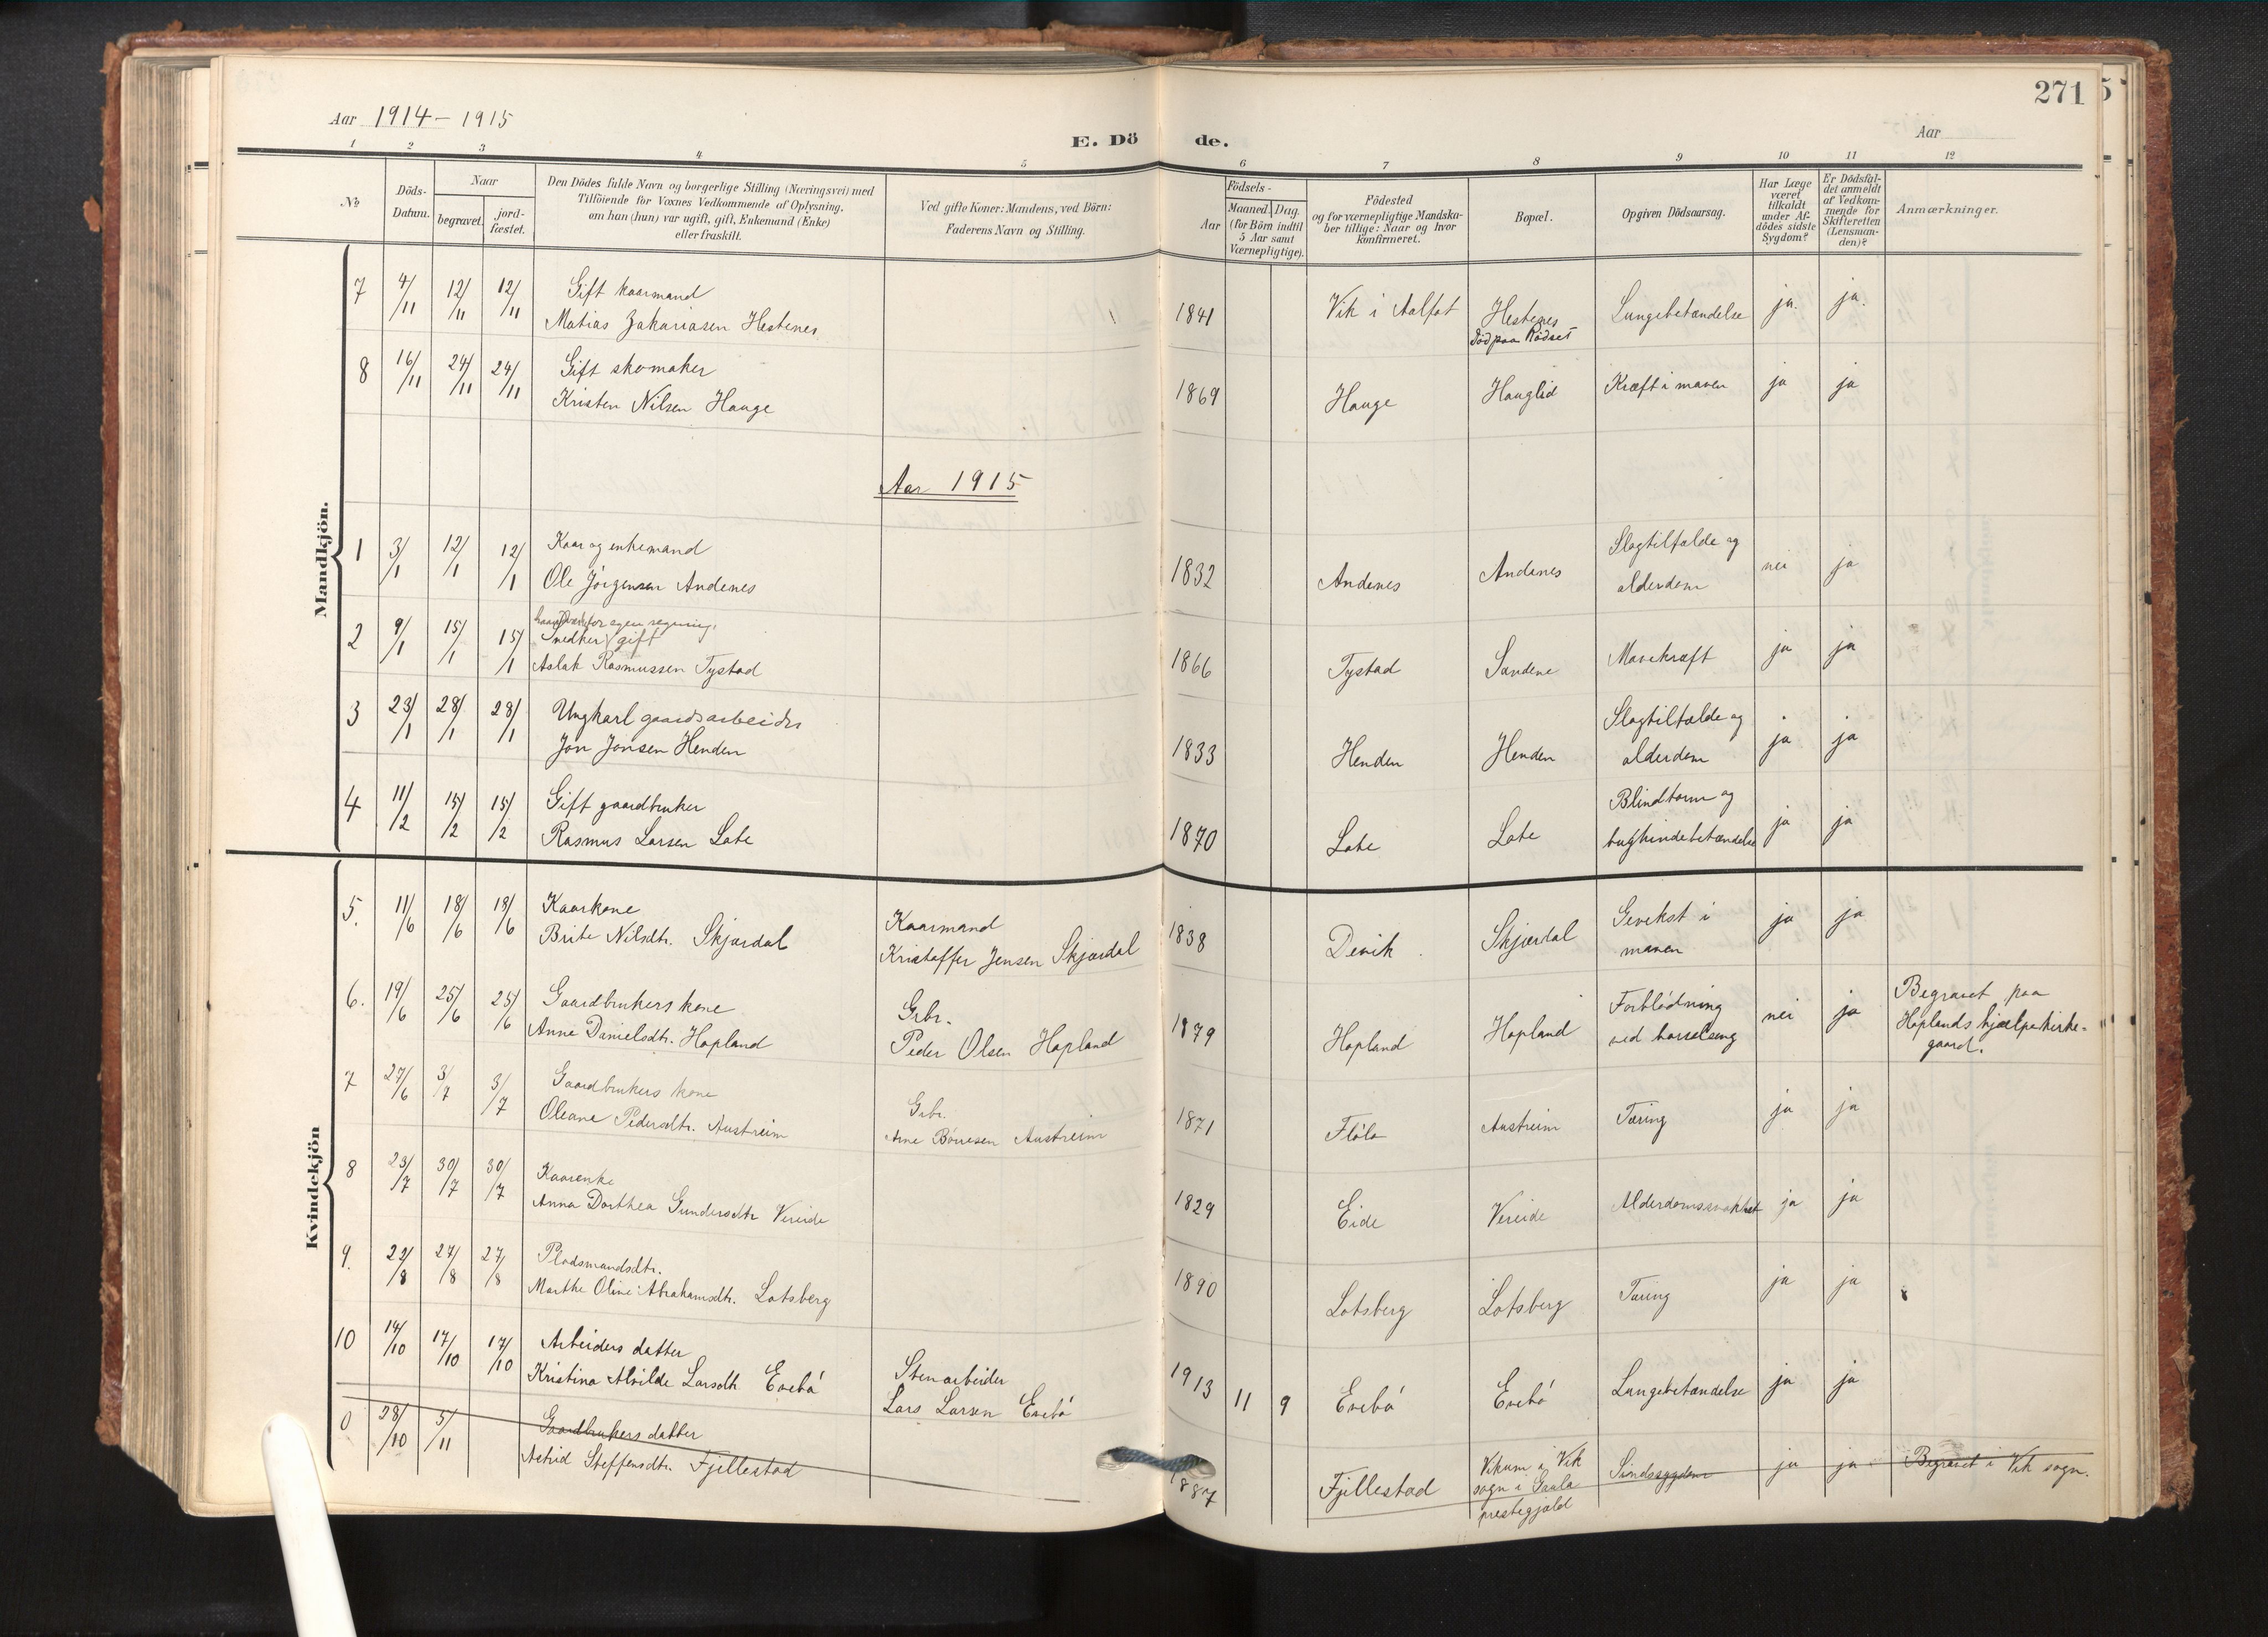 271
Aar 1914 - 1915
E. Dö de.
Aar
1 2 3 4 5 6 7 8 9 10 11 12
No
Döds-
Datum.
Naar
begravet.
jord-
fæstet.
Den Dödes fulde Navn og borgerlige Stilling (Næringsvei) med
Tilföiende for Voxnes Vedkommende af Oplysning,
om han (hun) var ugift, gift, Enkemand (Enke)
eller fraskilt.
Ved gifte Koner: Mandens, ved Börn:
Faderens Navn og Stilling.
Födsels-
Aar
Maaned. Dag.
(for Börn indtil
5 Aar samt
Værnepligtige).
Födested
og for værnepligtige Mandska-
ber tillige: Naar og hvor
konfirmeret.
Bopæl.
Opgiven Dödsaarsag.
Har Læge
været
tilkaldt
under Af-
dödes sidste
Sygdom?
Er Dödsfal-
det anmeldt
af Vedkom-
mende for
Skifteretten
(Lensman-
den)?
Anmærkninger.
Mandkjön.
7 4/11 12/11 12/11 Gift kaarmand
Matias Zakariasen Hestenes
1841 Vik i Aalfot Hestenes
Död paa Rödset
Lungebetændelse ja. ja.
8 16/11 24/11 24/11 Gift skomaker
Kristen Nilsen Hauge
1869 Hauge Hauglid Kræft i maven ja ja
Aar 1915
1 3/1 12/1 12/1 Kaar og enkemand
Ole Jörgensen Andenes
1832 Andenes Andenes Slagtilfælde og
alderdom
nei ja
2 9/1 15/1 15/1 for egen regning,
Snedker gift
Aslak Rasmussen Tystad
1866 Tystad Sandene Mavekræft ja ja
3 23/1 28/1 28/1 Ungkarl gaardsarbeider
Jon Jonsen Henden
1833 Henden Henden Slagtilfælde og
alderdom
ja ja
4 11/2 15/2 15/2 Gift gaardbruker
Rasmus Larsen Lote
1870 Lote Lote Blindtarm og
bughindebetændelse
ja ja
Kvindekjön
5. 11/6 18/6 18/6 Kaarkone
Brite Nilsdtr. Skjærdal
Kaarmand
Kristoffer Jensen Skjærdal
1838 Devik Skjærdal Gevekst i
maven
ja ja
6. 19/6 25/6 25/6 Gaardbrukers kone
Anne Danielsdtr. Hopland
Grbr.
Peder Olsen Hopland
1879 Hopland Hopland Forblödning
ved barselseng
nei ja Begravet paa
Hoplands hjælpekirke-
gaard.
7 27/6 3/7 3/7 Gaardbrukers kone
Oleane Pedersdtr. Austreim
Grbr.
Arne Börresen Austreim
1871 Flölo Austreim Tæring ja ja
8 23/7 30/7 30/7 Kaarenke
Anna Dorthea Gundersdtr Vereide
1829 Eide Vereide Alderdomssvakhet ja ja
9. 22/8 27/8 27/8 Pladsmandsdtr.
Marthe Oline Abrahamsdtr. Lotsberg
1890 Lotsberg Lotsberg Tæring ja ja
10 14/10 17/10 17/10 Arbeiders datter
Kristina Alvilde Larsdtr Evebö
Stenarbeider
Lars Larsen Evebö
1913 11 9 Evebö Evebö Lungebetændelse ja ja
0 28/10 5/11 Gaardbrukers datter
Astrid Steffensdtr. Fjellestad
1887 Fjellestad Vikum i Vik
sogn i Gaula
prestegjæld
Sindssygdom ja ja Begravet i Vik sogn.